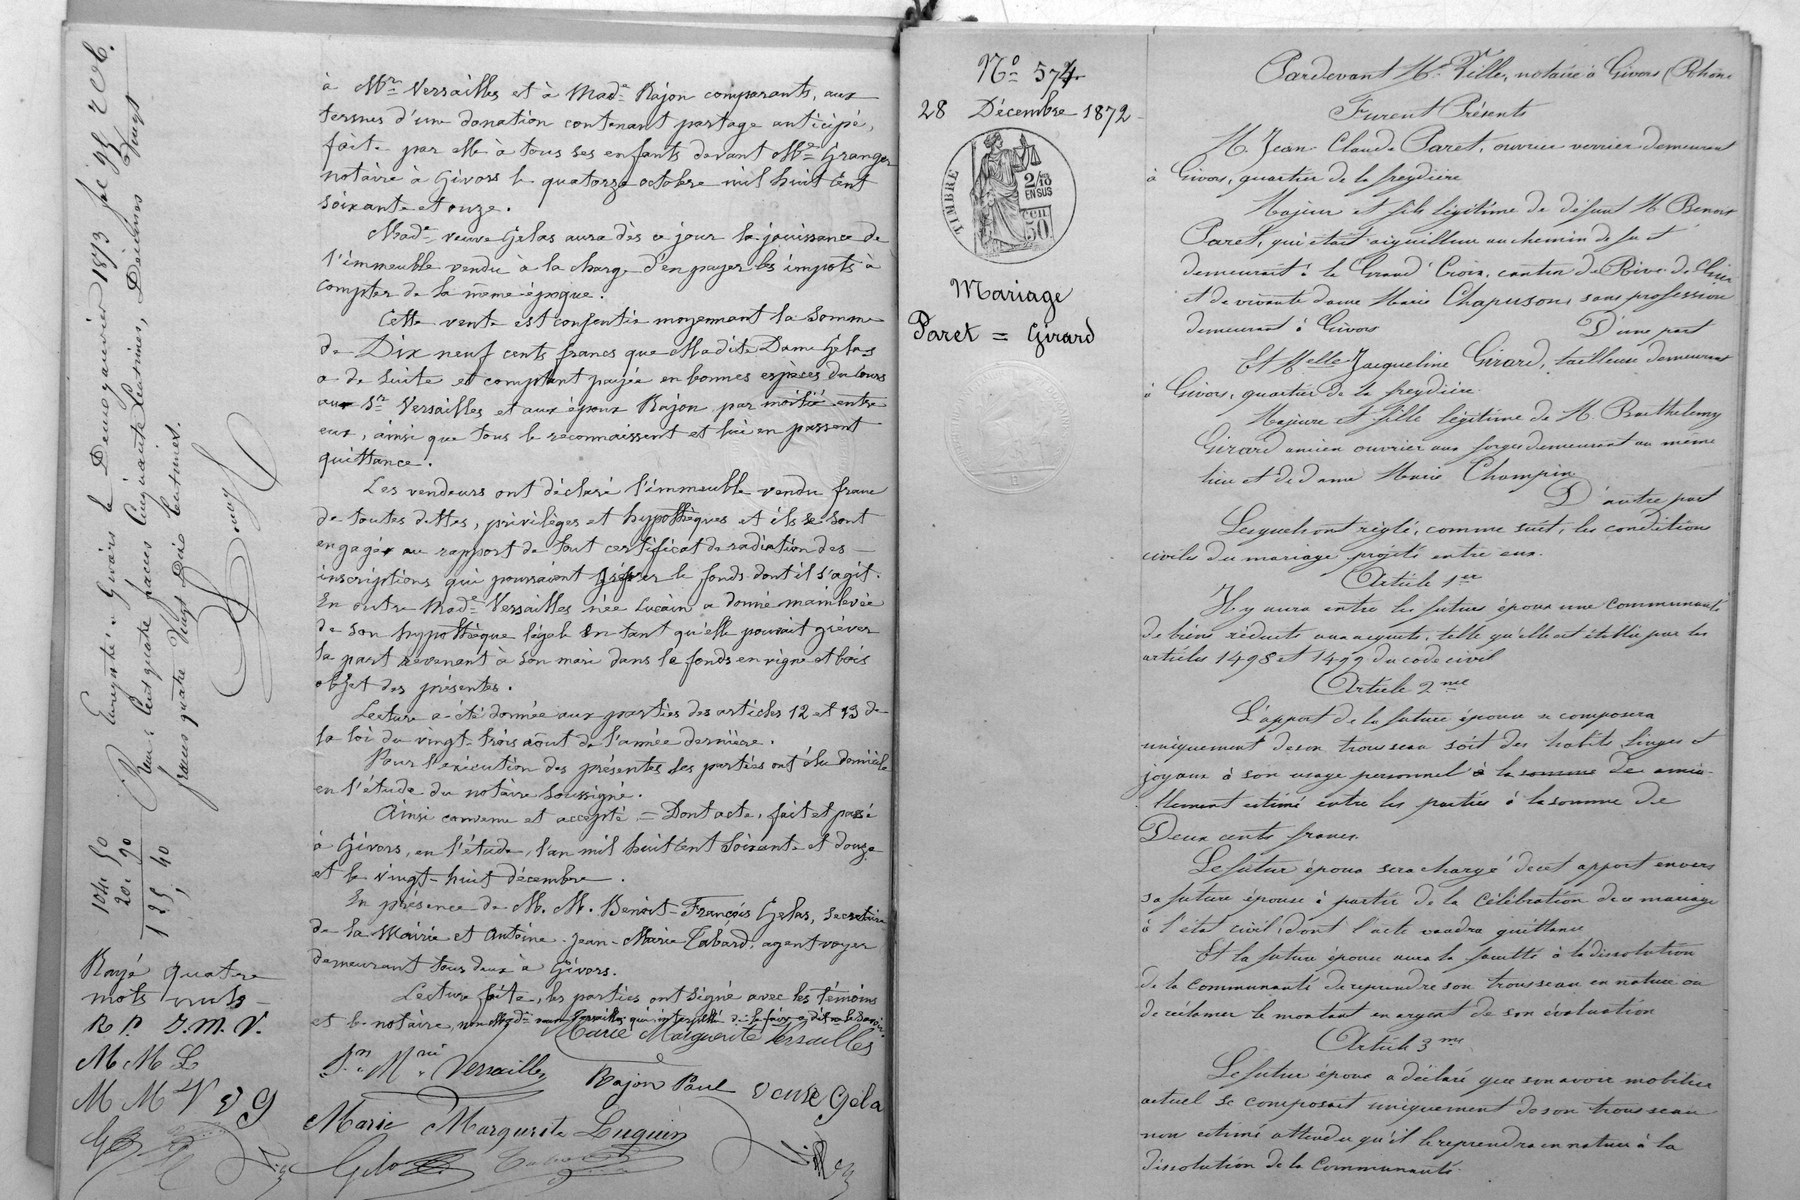 à Mr Versailles et à Made Rajon comparants, aux
termes d'une donation contenant partage anticipé,
faite par elle à tous ses enfants devant Me Granger
notaire à Givors le quatorze octobre mil huit cent
soixante et onze.
Made veuve Gelas aura dès ce jour la jouissance de
l'immeuble vendu à la charge d'en payer les impots à
compter de la même époque.
Cette vente est consentie moyennant la somme
de Dix neuf cents francs que Madite Dame Gelas
a de suite et comptant payée en bonnes espèces du cours
aux Sr Versailles et aux époux Rajon par moitié entre
eux, ainsi que tous le reconnaissent et lui en passent
quittance.
Les vendeurs ont déclaré l'immeuble vendu franc
de toutes dettes, privilèges et hypothèques et ils se sont
engagés au rapport de tout certificat de radiation des
inscriptions qui pourraient grever le fonds dont il s'agit.
En outre Made Versailles née a donné mainlevée
de son hypothèque légale en tant qu'elle pouvait grever
la part revenant à son mari dans le fonds en vigne et bois
objet des présentes.
Lecture a été donnée aux parties des articles 12 et 13 de
la loi du vingt-trois août de l'année dernière.
Pour l'exécution des présentes les parties ont élu domicile
en l'étude du notaire soussigné.
Ainsi convenu et accepté = Dont acte, fait et passé
à Givors, en l'étude, l'an mil huit cent soixante et douze
et le vingt-huit décembre.
En présence de M. M. Benoît-François Gelas, secrétaire
de la Mairie et Antoine Jean-Marie Tabard, agent voyer
demeurant tous deux à Givors.
Lecture faite, les parties ont signé avec les témoins
et le notaire, non
Marie Marguerite Versailles
Jn Mrie Versailles Rajon Paul veuve Gela
Marie Marguerite Luquin
Gelas
Enregistré à Givors le Deux janvier 1873 folio 45 R
Reçu Cent quatre francs Cinquante centimes, Décimes Vingt
francs quatre Vingt Dix centimes.
104, 50
20, 90
125, 40
Rayé quatre
mots nuls
R P J. M. V.
M M L
M M V V G
No 574
28 Décembre 1872
TIMBRE
2/10
EN SUS
50
Mariage
Paret = Girard
Pardevant Me Ville, notaire à Givors (Rhône
Furent Présents
M. Jean Claude Paret, ouvrier verrier demeurant
à Givors, quartier de la freydière
Majeur et fils légitime de défunt M. Benoit
Paret, qui était aiguilleur au chemin de fer et
demeurait à la Grand' Croix, canton de Rive-de-Gier
et de vivante dame Marie Chapuson, sans profession
demeurant à Givors D'une part
Et Melle Jacqueline Girard, tailleuse demeurant
à Givors, quartier de la freydière
Majeure et fille légitime de M. Barthelemy
Girard ancien ouvrier aux forges demeurant au même
lieu et de dame Marie Champin
D'autre part
Lesquels ont réglé, comme suit, les conditions
civiles du mariage projeté entre eux.
Article 1er
Il y aura entre les futurs époux une communauté
de biens réduite aux acquets, telle qu'elle est établie par les
articles 1498 et 1499 du code civil
Article 2me
L'apport de la future épouse se composera
uniquement de son trousseau soit des habits linges et
joyaux à son usage personnel à la somme de amia-
blement estimé entre les parties à la somme de
Deux cents francs.
Le futur époux sera chargé de cet apport envers
sa future épouse à partir de la célébration de ce mariage
à l'état civil, dont l'acte vaudra quittance
Et la future épouse aura la faculté à la dissolution
de la communauté de reprendre son trousseau en nature ou
de réclamer le montant en argent de son évaluation
Article 3me
Le futur époux a déclaré que son avoir mobilier
actuel se composait uniquement de son trousseau
non estimé attendu qu'il le reprendra en nature à la
dissolution de la communauté.